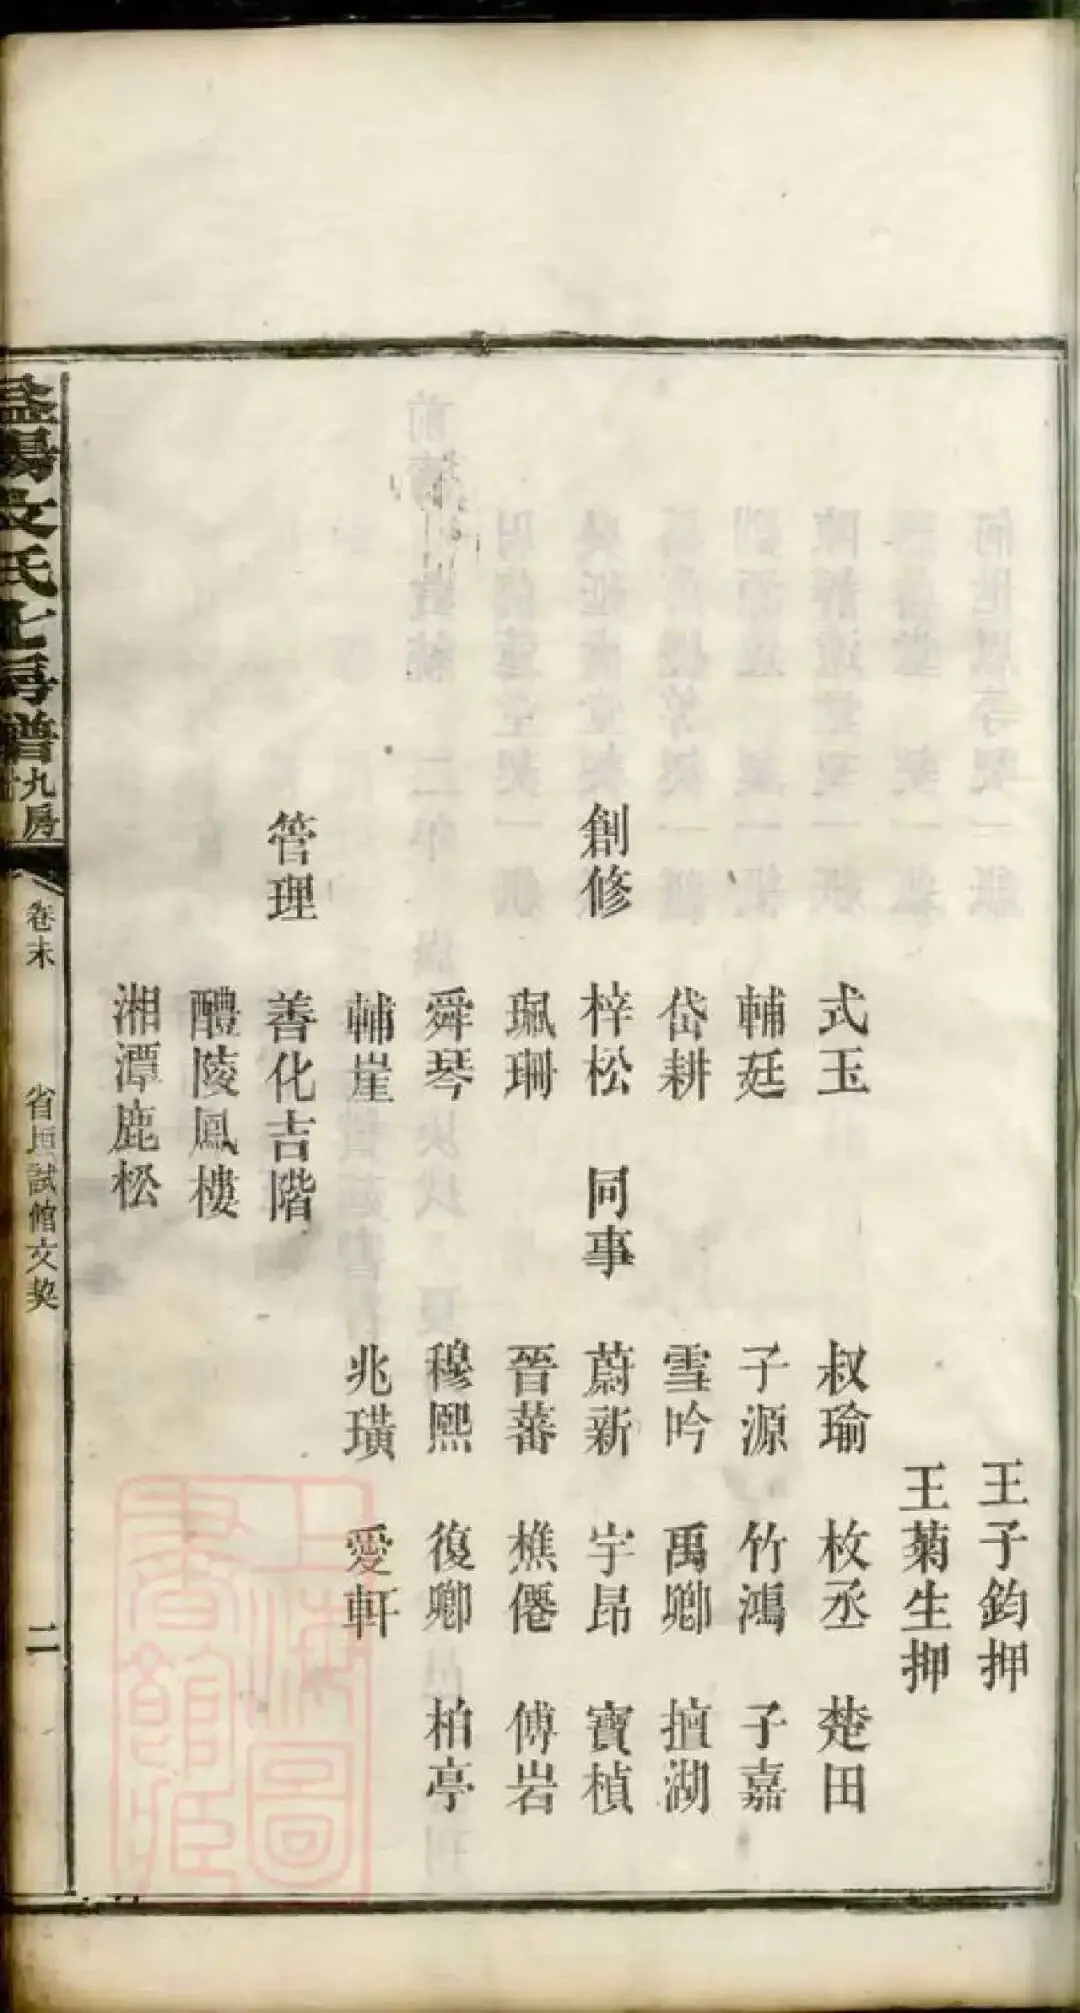 王子鈞押
王菊生押
式玉 叔瑜 枚丞 楚田
輔廷 子源 竹鴻 子嘉
岱耕 雪吟 禹卿 擅湖
創修 梓松 同事 蔚新 宇昂 寶楨
珮珊 晉蕃 樵僊 傅岩
舜琴 穆熙 復卿 柏亭
輔崖 兆璜 愛軒
管理 善化吉階
醴陵鳳樓
湘潭鹿松
益陽 氏七房譜
九房
卷末 省垣試館文契 二
上海圖
書館藏